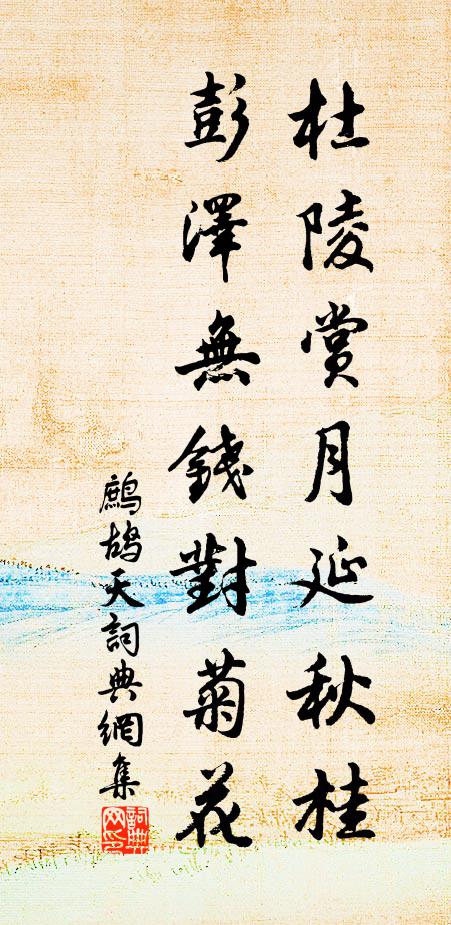 杜陵賞月延秋桂
彭澤無錢對菊花
鷓鴣天詞典網集
詞典網印